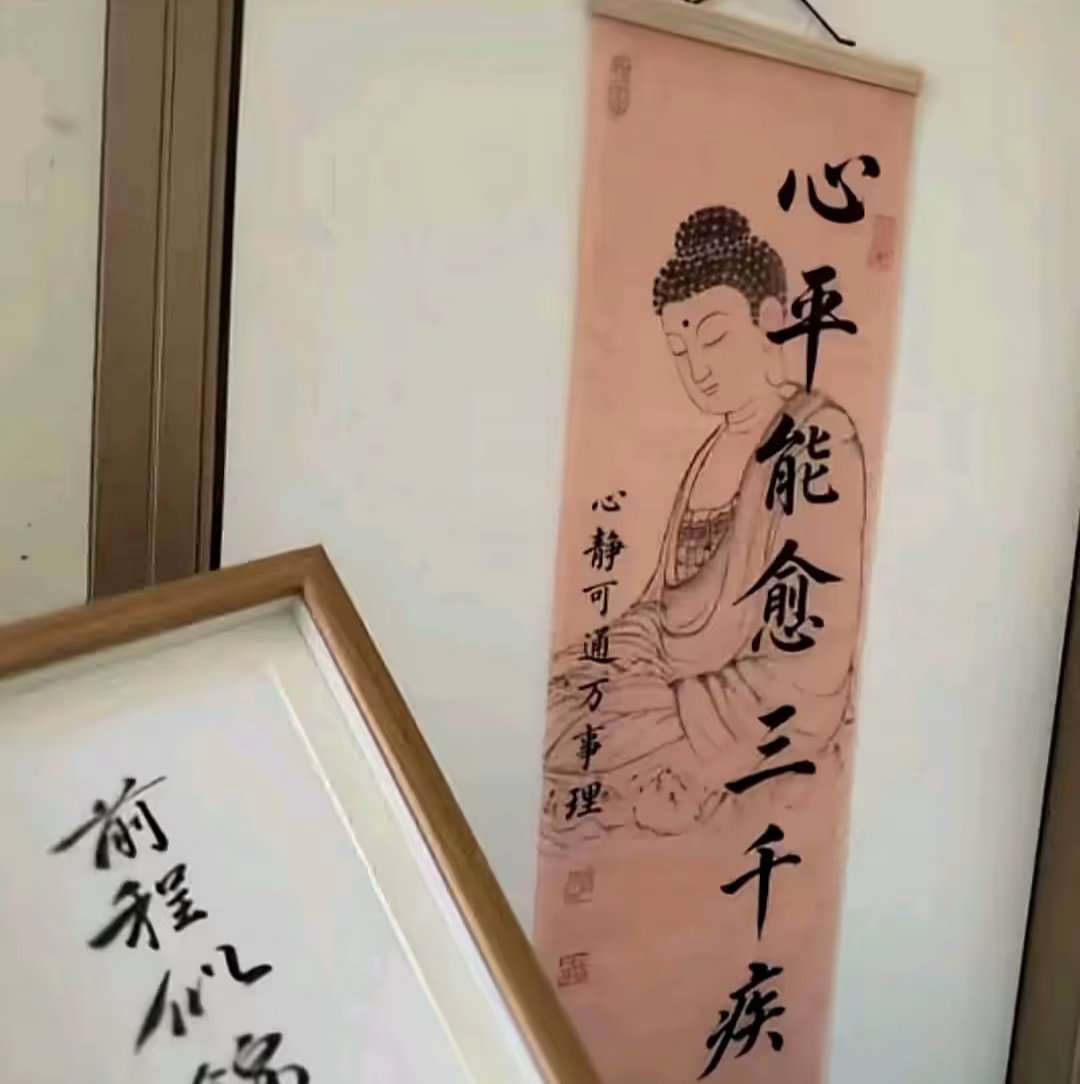 心平能愈三千疾
心静可通万事理
前程似锦